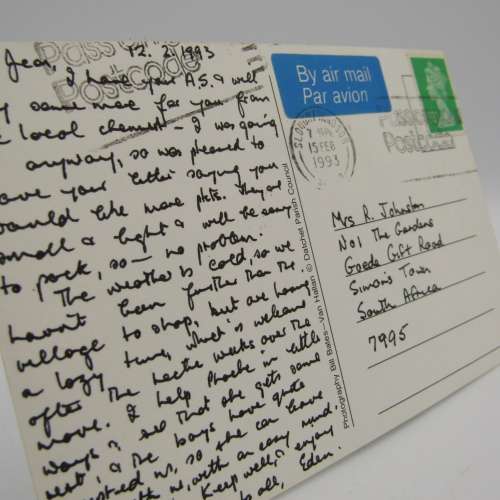 12. 2. 1993
Dear, I have your A.S. & will
some more for you from
local chemist – I was going
anyway, so was pleased to
your letter saying you
would like more pkts. They are
small & light & will be easy
to pack, so – no problem.
The weather is cold, so we
haven't been further than the
village to shop, but are having
a lazy time, which is welcome
after the hectic weeks over the
move. I help Phoebe in little
ways & see that she gets some
rest, & the boys have quite
us, so she can leave
us, with an easy mind.
Keep well, & enjoy
all, Eden.
Photography Bill Bates–Van Hallan © Datchet Parish Council
By air mail
Par avion
Postcode
SLOUGH
15 FEB
1993
Postcode
Mrs R. Johnston
No 1 The Gardens
Goede Gift Road
Simon's Town
South Africa
7995